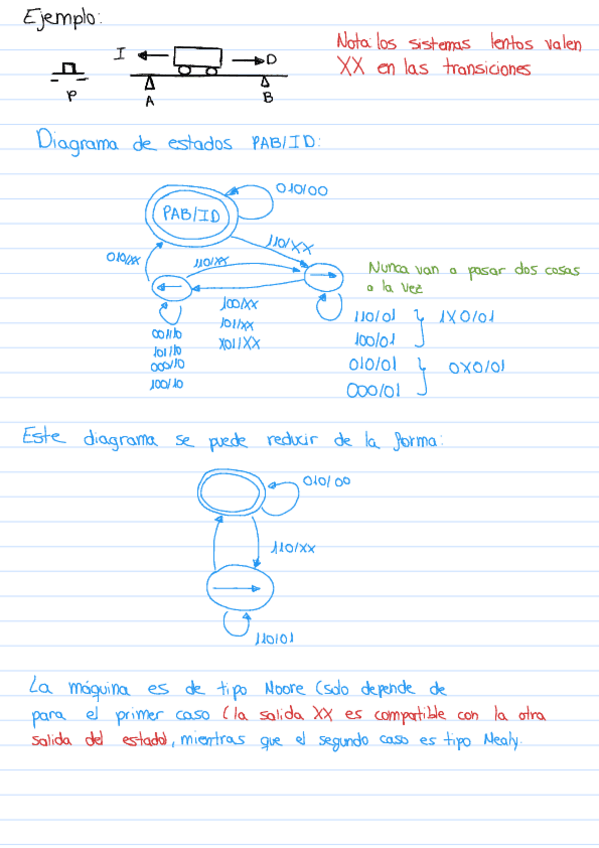 Ejemplo:
Nota: los sistemas lentos valen
XX en las transiciones
I
D
P
A
B
Diagrama de estados PAB/ID:
010/00
PAB/ID
110/XX
010/XX
110/XX
Nunca van a pasar dos cosas
a la vez
100/XX
101/XX
X01/XX
001/10
101/10
000/10
100/10
110/01 1X0/01
100/01
010/01 0X0/01
000/01
Este diagrama se puede reducir de la forma:
010/00
110/XX
110/01
La máquina es de tipo Moore (solo depende de
para el primer caso (la salida XX es compatible con la otra
salida del estado), mientras que el segundo caso es tipo Mealy.